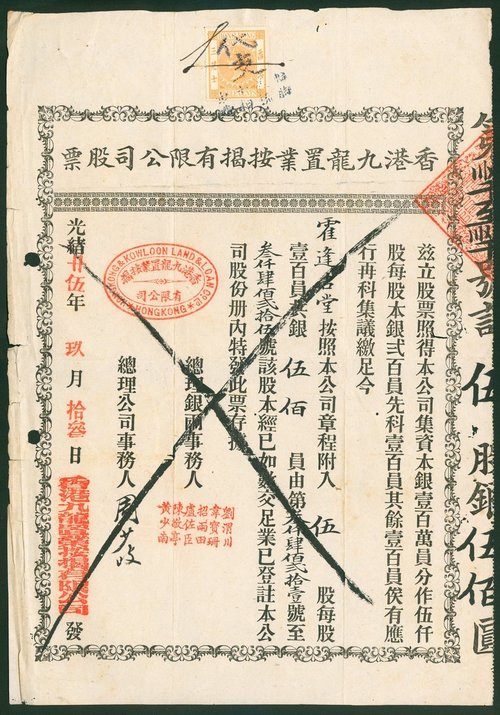 香港九龍置業按揭有限公司股票
茲立股票照得本公司集資本銀壹百萬員分作伍仟
股每股本銀弍百員先科壹百員其餘壹百員俟有應
行再科集議繳足今
霍達堂按照本公司章程附入伍股每股
壹百員其銀伍佰員由第叁仟肆佰弍拾壹號至
叁仟肆佰弍拾伍號該股本經已如數交足業已登註本公
司股份册內特發此票存據
總理銀兩事務人
劉渭川
韋寶珊
招雨田
盧佐臣
陳敬亭
黃少南
總理公司事務人
光緒廿伍年玖月拾叁日香港九龍置業按揭有限公司發
HONGKONG & KOWLOON LAND & LOAN CO LD
香港九龍置業按揭
有限公司
HONGKONG
伍股銀伍佰圓